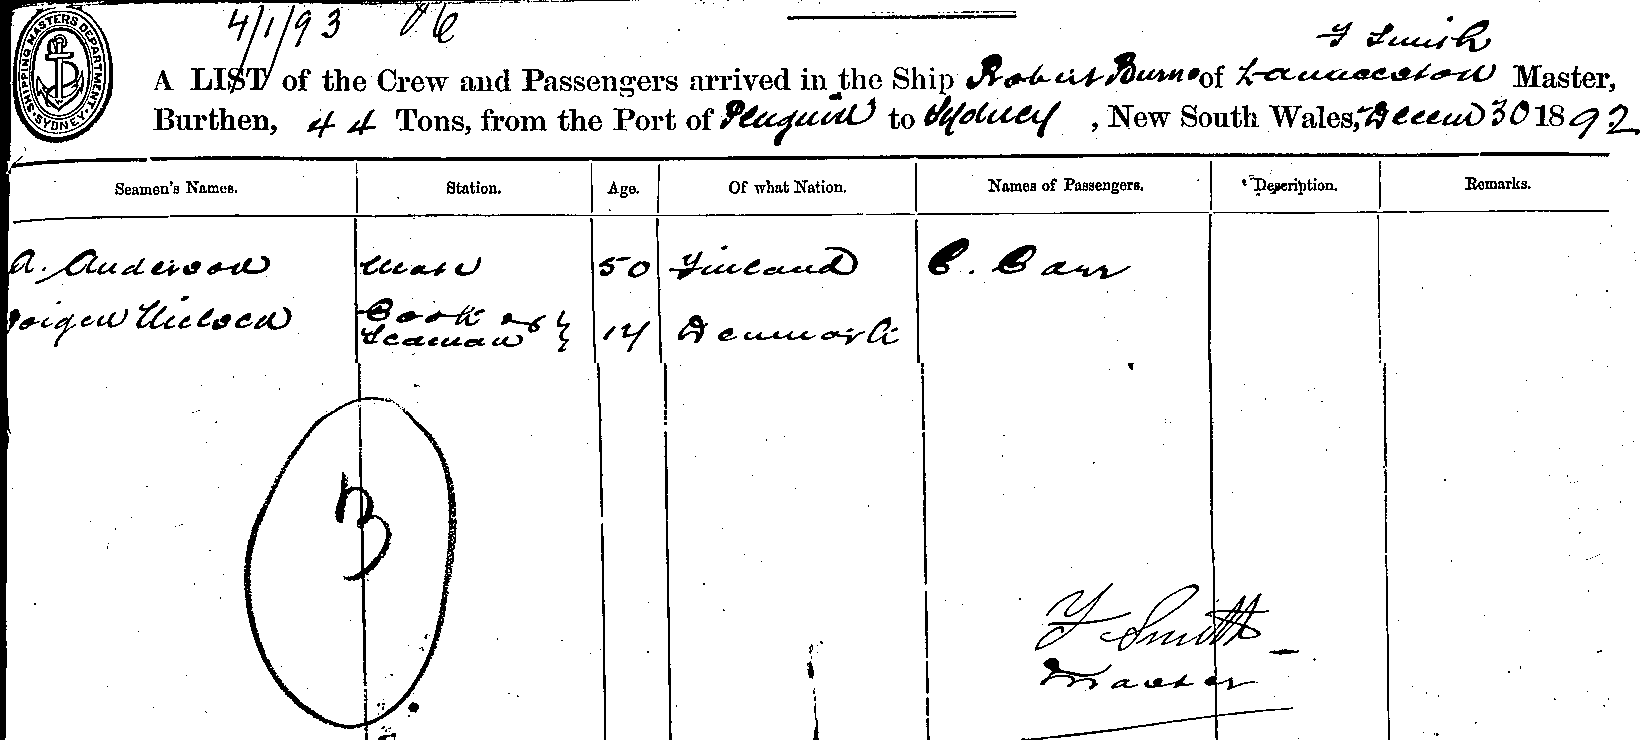 4/1/93
F Smith
SHIPPING MASTERS DEPARTMENT SYDNEY
A LIST of the Crew and Passengers arrived in the Ship Robert Burns of Launceston Master,
Burthen, 44 Tons, from the Port of Penguin to Sydney, New South Wales, Decem 30 1892
Seamen's Names. Station. Age. Of what Nation. Names of Passengers. Description. Remarks.
A. Anderson Mate 50 Finland C. Carr
Nielsen Cook &
Seaman } 14 Denmark
3
F Smith
Master